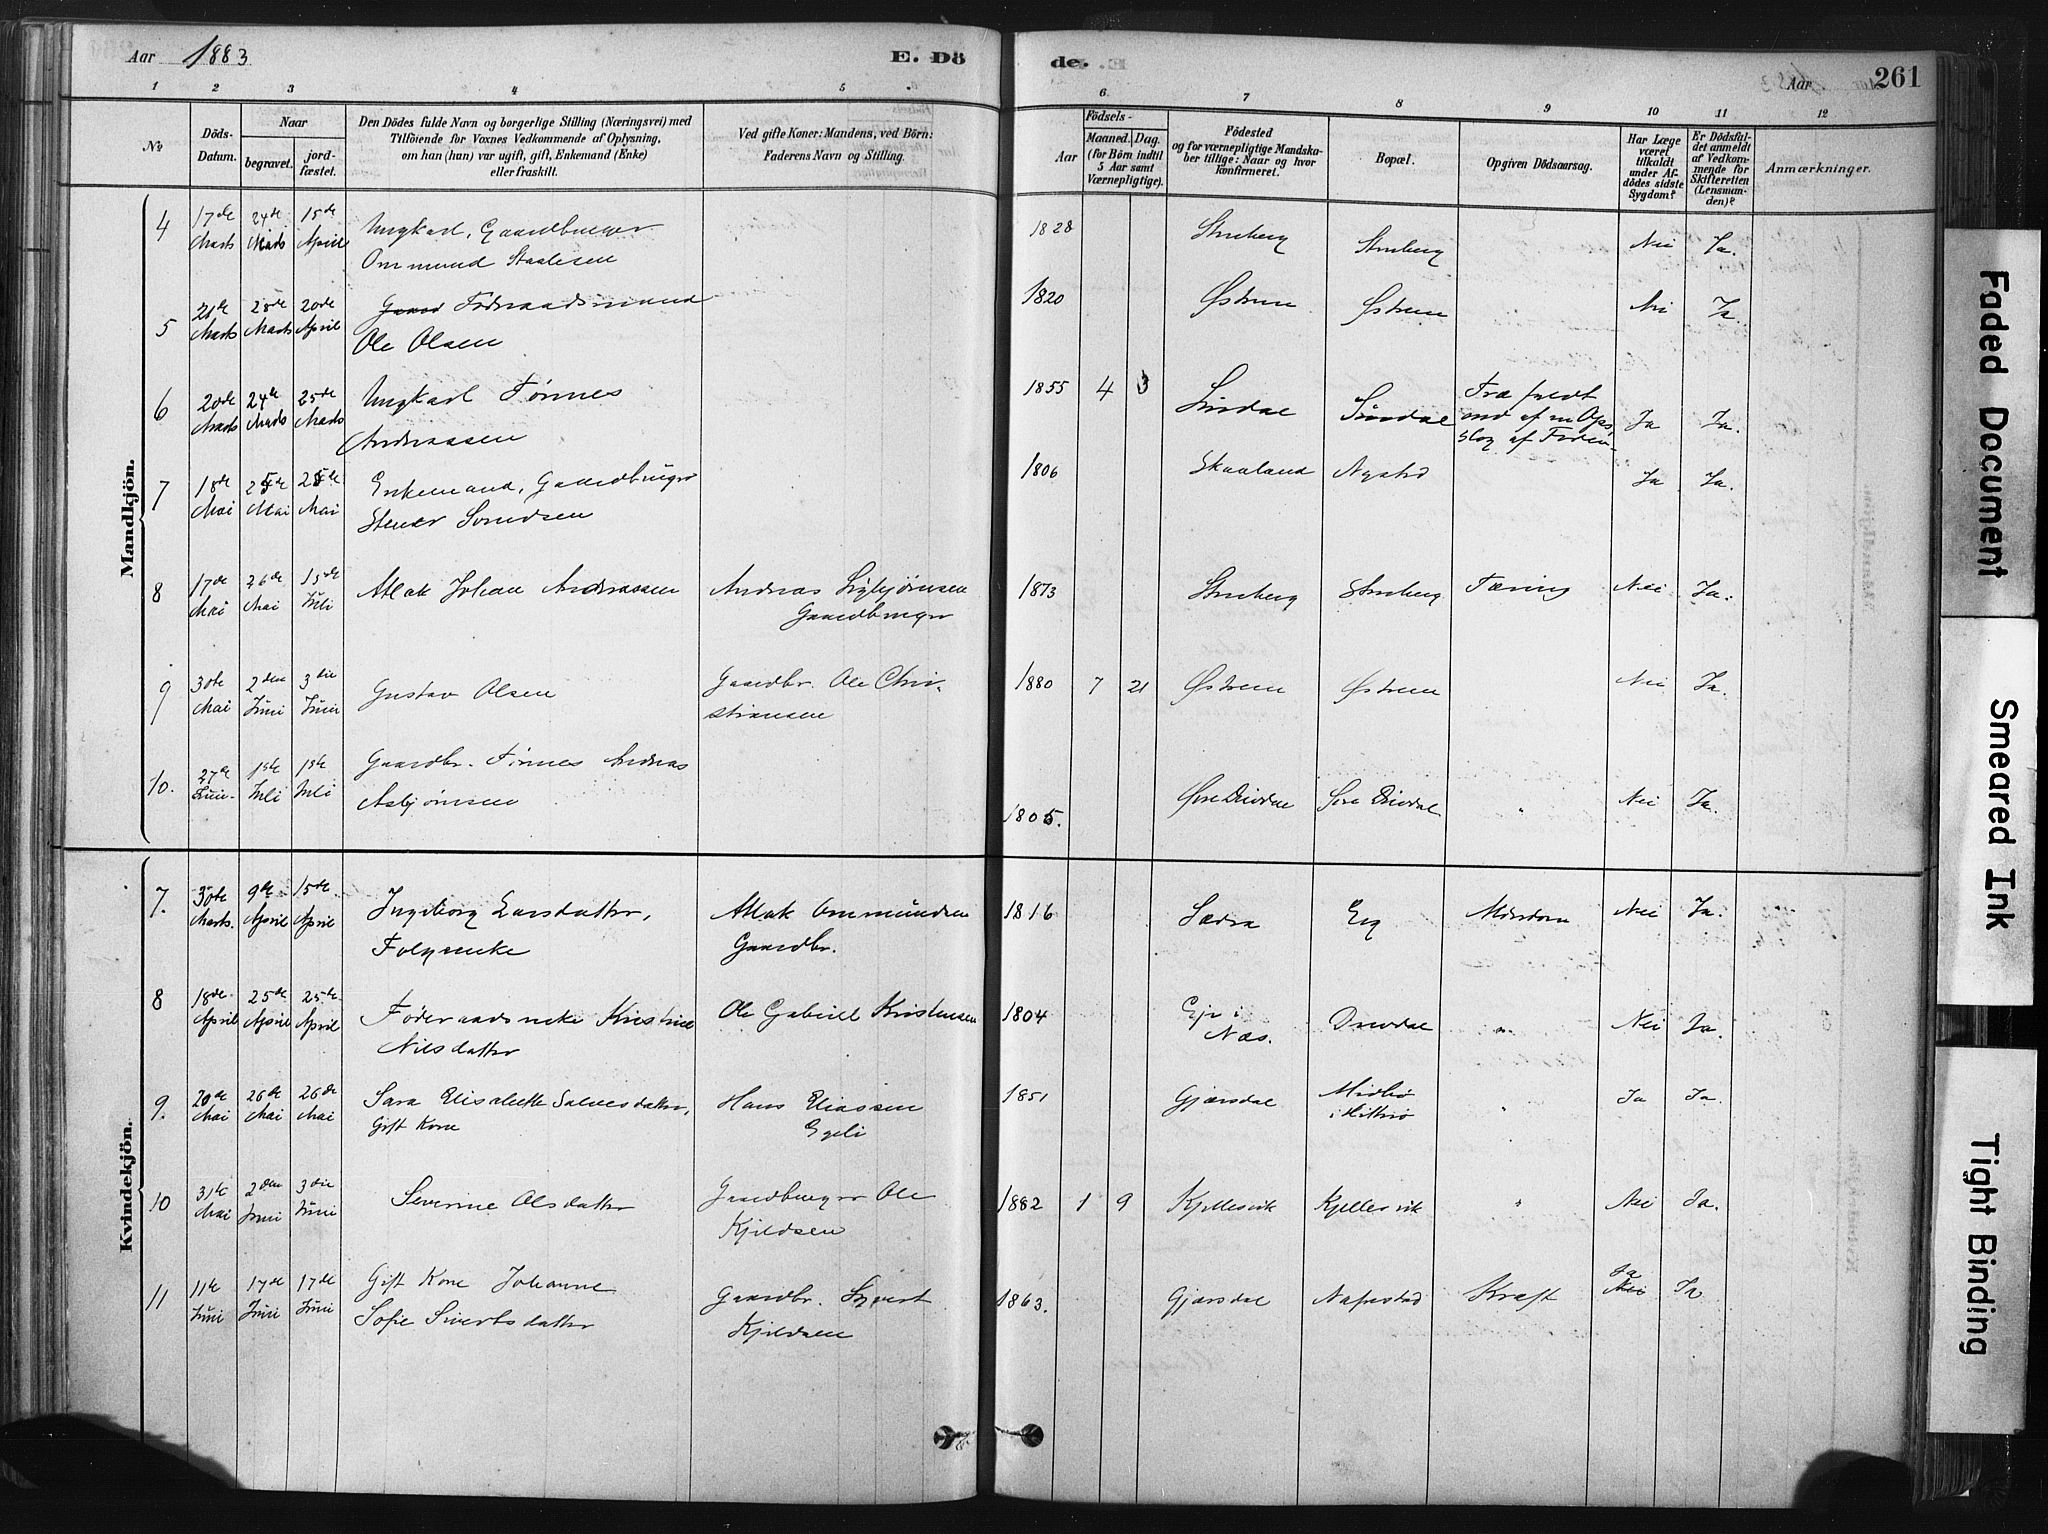 Aar 1883
E. Dö
de.
Aar
261
1 2 3 4 5
6 7 8 9 10 11 12
№
Döds-
Datum.
Naar
begravet.
jord-
fæstet.
Den Dödes fulde Navn og borgerlige Stilling (Næringsvei) med
Tilföiende for Voxnes Vedkommende af Oplysning,
om han (hun) var ugift, gift, Enkemand (Enke)
eller fraskilt.
Ved gifte Koner: Mandens, ved Börn:
Faderens Navn og Stilling.
Födsels-
Aar
Maaned. Dag.
(for Börn indtil
5 Aar samt
Værnepligtige).
Födested
og for værnepligtige Mandska-
ber tillige: Naar og hvor
konfirmeret.
Bopæl.
Opgiven Dödsaarsag.
Har Læge
været
tilkaldt
under Af-
dödes sidste
Sygdom?
Er Dödsfal-
det anmeldt
af Vedkom-
mende for
Skifteretten
(Lensman-
den)?
Anmærkninger.
Mandkjön.
4 17de Marts 24de Marts 15de April Ungkarl, Gaardbruger
Ommund Staalesen
1828 Struberg Struberg Nei Ja.
5 21de Marts 28de Marts 20de April Gaard Föderaadsmand
Ole Olsen
1820 Østrem Østrem Nei Ja.
6 20de Marts 24de Marts 25de Marts Ungkarl Tønnes
Andreassen
1855 4 3 Sirdal Sirdal Ja Ja.
7 18de Mai 25de Mai 25de Mai Enkemand, Gaardbruger
1806 Skaaland Ja Ja.
8 17de Mai 26de Mai 15de Juli Atlak Johan Andreassen
Andreas Sigbjørnsen
Gaardbruger
1873 Struberg Struberg Tæring Nei Ja.
9 30te Mai 2den Juni 3die Juni Gustav Olsen
Gaardbr. Ole Chri-
stiansen
1880 7 21 Østrem Østrem Nei Ja.
10. 27de Juni 1ste Juli 1ste Juli Gaardbr. Tønnes Andreas
Asbjørnsen
1805. Øvre Drivdal Øvre Drivdal " Nei Ja.
Kvindekjön.
7. 30te Marts. 9de April 15de April Ingeborg Larsdatter,
Atlak Ommundsen
Gaardbr.
1816 Eeg Nei Ja.
8 18de April 25de April 25de April Føderaadsenke Kristine
Nilsdatter
Ole Gabriel Kristensen
1804 Eje i
Næs. Drivdal " Nei Ja.
9. 20de Mai 26de Mai 26de Mai Sara Elisabeth Salvesdatter,
Gift Kone
Hans Eliassen
Egeli
1851 Gjærsdal Midbø
i Hitterø " Ja Ja.
10 31te Mai 2den Juni 3die Juni Severine Olsdatter
Gaardbruger Ole
Kjeldsen
1882 1 9 Kjellesvik Kjellesvik " Nei Ja.
11 11te Juni 17de Juni 17de Juni Gift Kone Johanne
Sofie Sivertsdatter
Gaardbr. Sivert
Kjeldsen
1863. Gjærsdal Kræft Ja
Nei Ja
Faded Document
Smeared Ink
Tight Binding